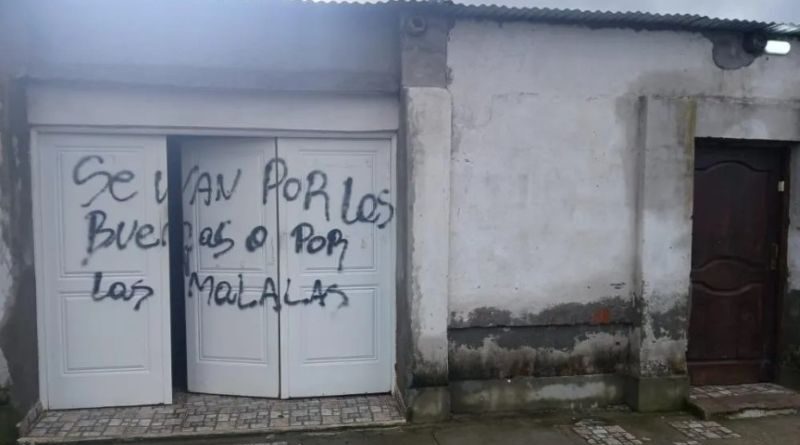 Se VAN POR los
BUENAS O POR
las MalALAS